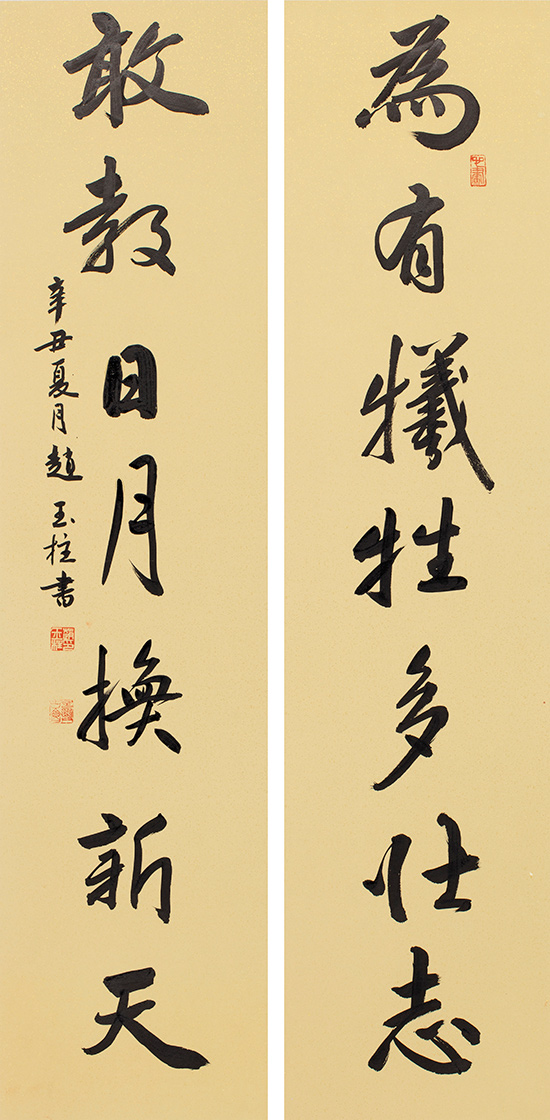 為有犧牲多壯志
敢教日月換新天
辛丑夏月趙玉柱書